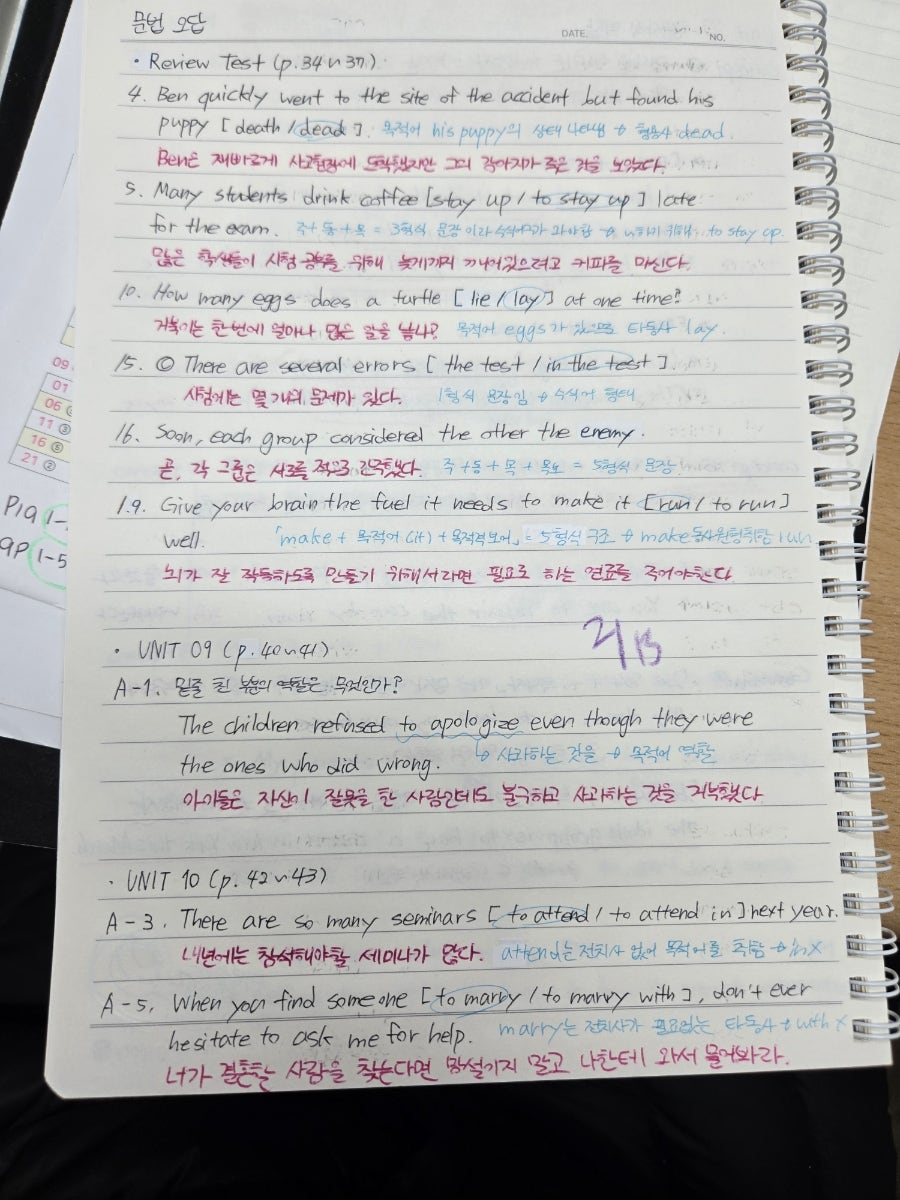 문법 오답
DATE. NO.
· Review Test (p.34~37)
4. Ben quickly went to the site of the accident but found his
puppy [death / dead]. 목적어 his puppy의 상태 나타냄 → 형용사 dead.
Ben은 재빠르게 사고현장에 도착했지만 그의 강아지가 죽은 것을 보았다.
5. Many students drink coffee [stay up / to stay up] late
for the exam. 주+동+목 = 3형식 문장이라 수식어가 와야함 → ~하기 위해: to stay up.
많은 학생들이 시험 공부를 위해 늦게까지 깨어있으려고 커피를 마신다.
10. How many eggs does a turtle [lie / lay] at one time?
거북이는 한번에 얼마나 많은 알을 낳나? 목적어 eggs가 있으므로 타동사 lay.
15. ⓒ There are several errors [the test / in the test].
시험에는 몇 개의 문제가 있다. 1형식 문장임 → 수식어 형태
16. Soon, each group considered the other the enemy.
곧, 각 그룹은 서로를 적으로 간주했다. 주+동+목+목보 = 5형식 문장
19. Give your brain the fuel it needs to make it [run / to run]
well. 「make + 목적어(it) + 목적격보어」 = 5형식 구조 → make 동사원형취함 run
뇌가 잘 작동하도록 만들기 위해서라면 필요로 하는 연료를 주어야한다.
2/13
· UNIT 09 (p.40~41)
A-1. 밑줄 친 부분의 역할은 무엇인가?
The children refused to apologize even though they were
↳ 사과하는 것을 → 목적어 역할
the ones who did wrong.
아이들은 자신이 잘못을 한 사람인데도 불구하고 사과하는 것을 거부했다.
· UNIT 10 (p.42~43)
A-3. There are so many seminars [to attend / to attend in] next year.
내년에는 참석해야할 세미나가 많다. attend는 전치사 없이 목적어를 취함 → in X
A-5. When you find someone [to marry / to marry with], don't ever
hesitate to ask me for help. marry는 전치사가 필요없는 타동사 → with X
너가 결혼할 사람을 찾는다면 망설이지 말고 나한테 와서 물어봐라.
09
01
06
11 ③
16 ⑤
21 ②
P19 1-
9P 1-5